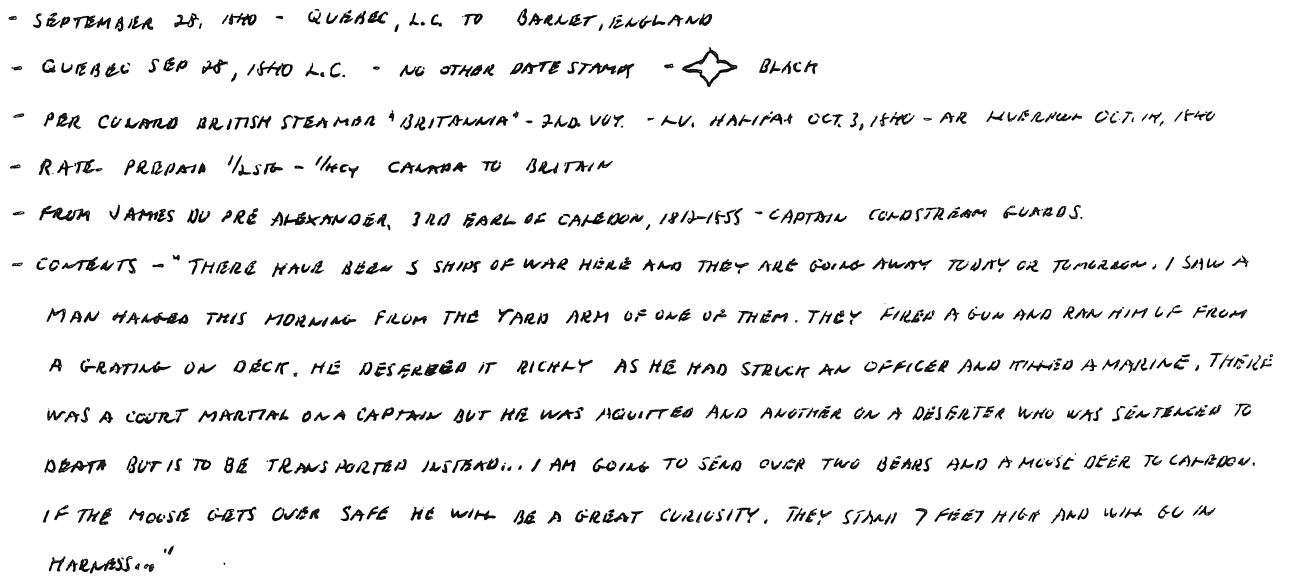 - SEPTEMBER 28, 1840 - QUEBEC, L.C. TO BARNET, ENGLAND
- QUEBEC SEP 28, 1840 L.C. - NO OTHER DATE STAMP - BLACK
- PER CUNARD BRITISH STEAMER "BRITANNIA" - 2ND. VOY. - LV. HALIFAX OCT. 3, 1840 - AR LIVERPOOL OCT. 14, 1840
- RATE - PREPAID 1/2 STG - 1/4 CY CANADA TO BRITAIN
- FROM JAMES DU PRÉ ALEXANDER, 3RD EARL OF CALEDON, 1812-1855 - CAPTAIN COLDSTREAM GUARDS.
- CONTENTS - "THERE HAVE BEEN 5 SHIPS OF WAR HERE AND THEY ARE GOING AWAY TODAY OR TOMORROW. I SAW A
MAN HANGED THIS MORNING FROM THE YARD ARM OF ONE OF THEM. THEY FIRED A GUN AND RAN HIM UP FROM
A GRATING ON DECK. HE DESERVED IT RICHLY AS HE HAD STRUCK AN OFFICER AND KILLED A MARINE. THERE
WAS A COURT MARTIAL ON A CAPTAIN BUT HE WAS AQUITTED AND ANOTHER ON A DESERTER WHO WAS SENTENCED TO
DEATH BUT IS TO BE TRANSPORTED INSTEAD... I AM GOING TO SEND OVER TWO BEARS AND A MOOSE DEER TO CALEDON.
IF THE MOOSE GETS OVER SAFE HE WILL BE A GREAT CURIOSITY. THEY STAND 7 FEET HIGH AND WILL GO IN
HARNESS..."